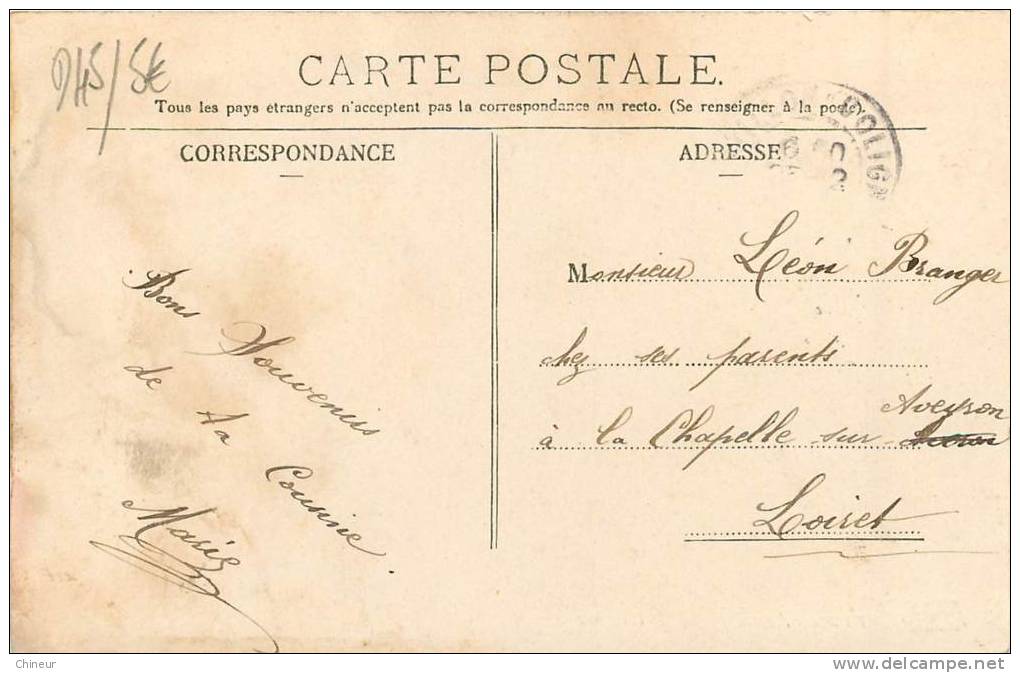 D45/5€
CARTE POSTALE.
Tous les pays étrangers n'acceptent pas la correspondance au recto. (Se renseigner à la poste).
CORRESPONDANCE
ADRESSE
Bons Souvenirs
de ta Cousine
Marie
Monsieur Léon Branger
chez ses parents
à la Chapelle sur Aveyron
Loiret
Chineur
www.delcampe.net